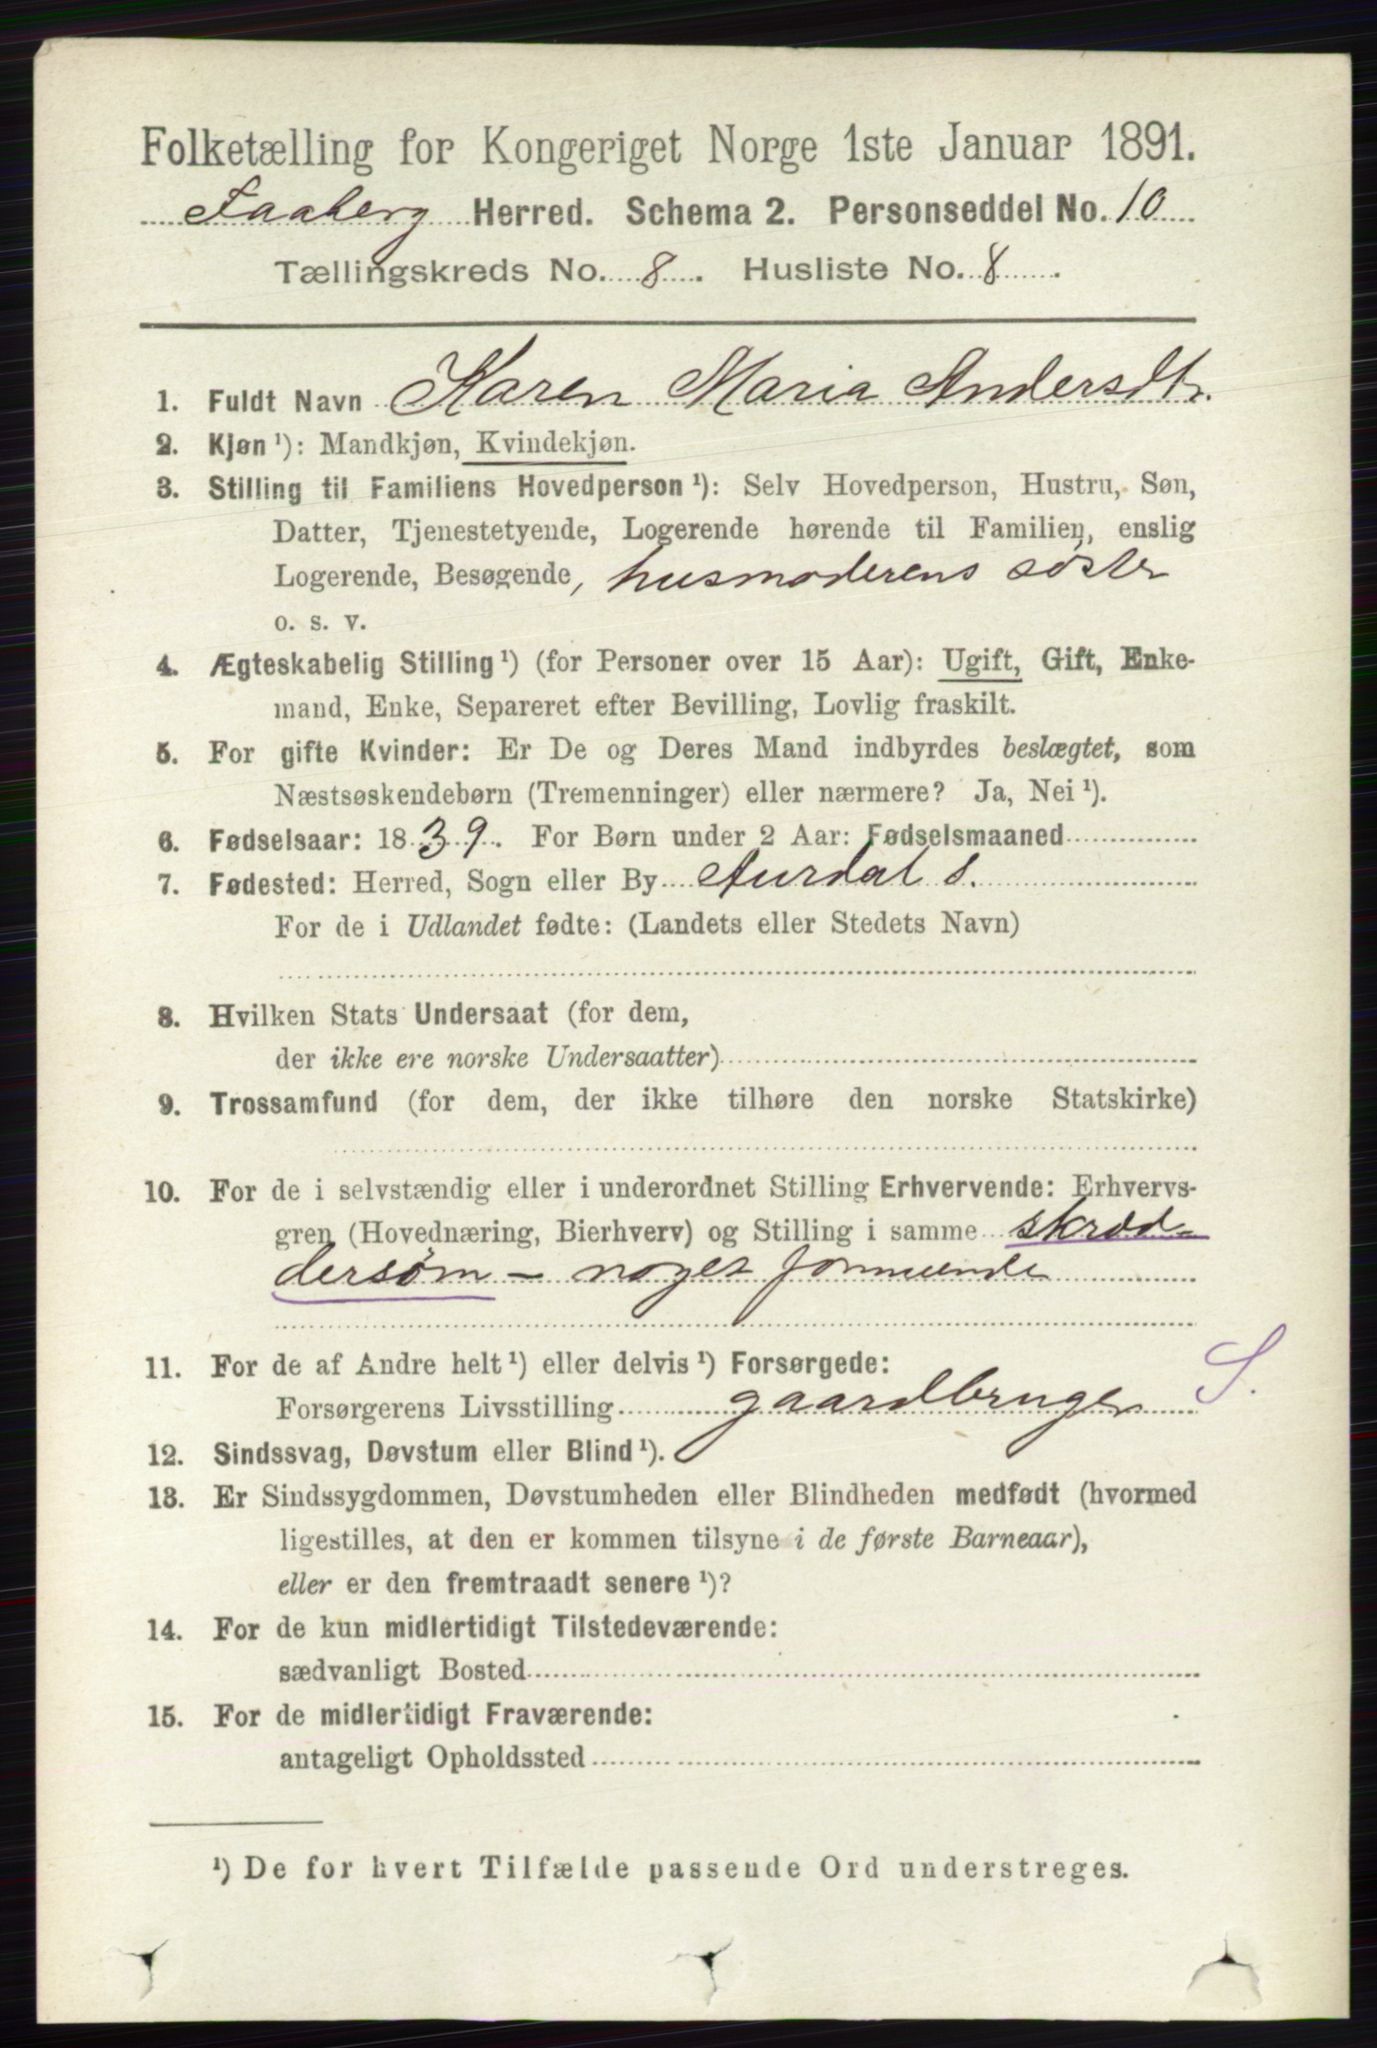 Folketælling for Kongeriget Norge 1ste Januar 1891.
Faaberg Herred. Schema 2. Personseddel No. 10
Tællingskreds No. 8. Husliste No. 8
1. Fuldt Navn Karen Maria Andersdtr.
2. Kjøn ¹): Mandkjøn, Kvindekjøn.
3. Stilling til Familiens Hovedperson ¹): Selv Hovedperson, Hustru, Søn,
Datter, Tjenestetyende, Logerende hørende til Familien, enslig
Logerende, Besøgende, husmoderens søster
o. s. v.
4. Ægteskabelig Stilling ¹) (for Personer over 15 Aar): Ugift, Gift, Enke-
mand, Enke, Separeret efter Bevilling, Lovlig fraskilt.
5. For gifte Kvinder: Er De og Deres Mand indbyrdes beslægtet, som
Næstsøskendebørn (Tremenninger) eller nærmere? Ja, Nei ¹).
6. Fødselsaar: 1839. For Børn under 2 Aar: Fødselsmaaned
7. Fødested: Herred, Sogn eller By Aurdal s.
For de i Udlandet fødte: (Landets eller Stedets Navn)
8. Hvilken Stats Undersaat (for dem,
der ikke ere norske Undersaatter)
9. Trossamfund (for dem, der ikke tilhøre den norske Statskirke)
10. For de i selvstændig eller i underordnet Stilling Erhvervende: Erhvervs-
gren (Hovednæring, Bierhverv) og Stilling i samme skræd-
dersøm - noget formuende
11. For de af Andre helt ¹) eller delvis ¹) Forsørgede:
Forsørgerens Livsstilling gaardbruger S.
12. Sindssvag, Døvstum eller Blind ¹).
13. Er Sindssygdommen, Døvstumheden eller Blindheden medfødt (hvormed
ligestilles, at den er kommen tilsyne i de første Barneaar),
eller er den fremtraadt senere ¹)?
14. For de kun midlertidigt Tilstedeværende:
sædvanligt Bosted
15. For de midlertidigt Fraværende:
antageligt Opholdssted
¹) De for hvert Tilfælde passende Ord understreges.